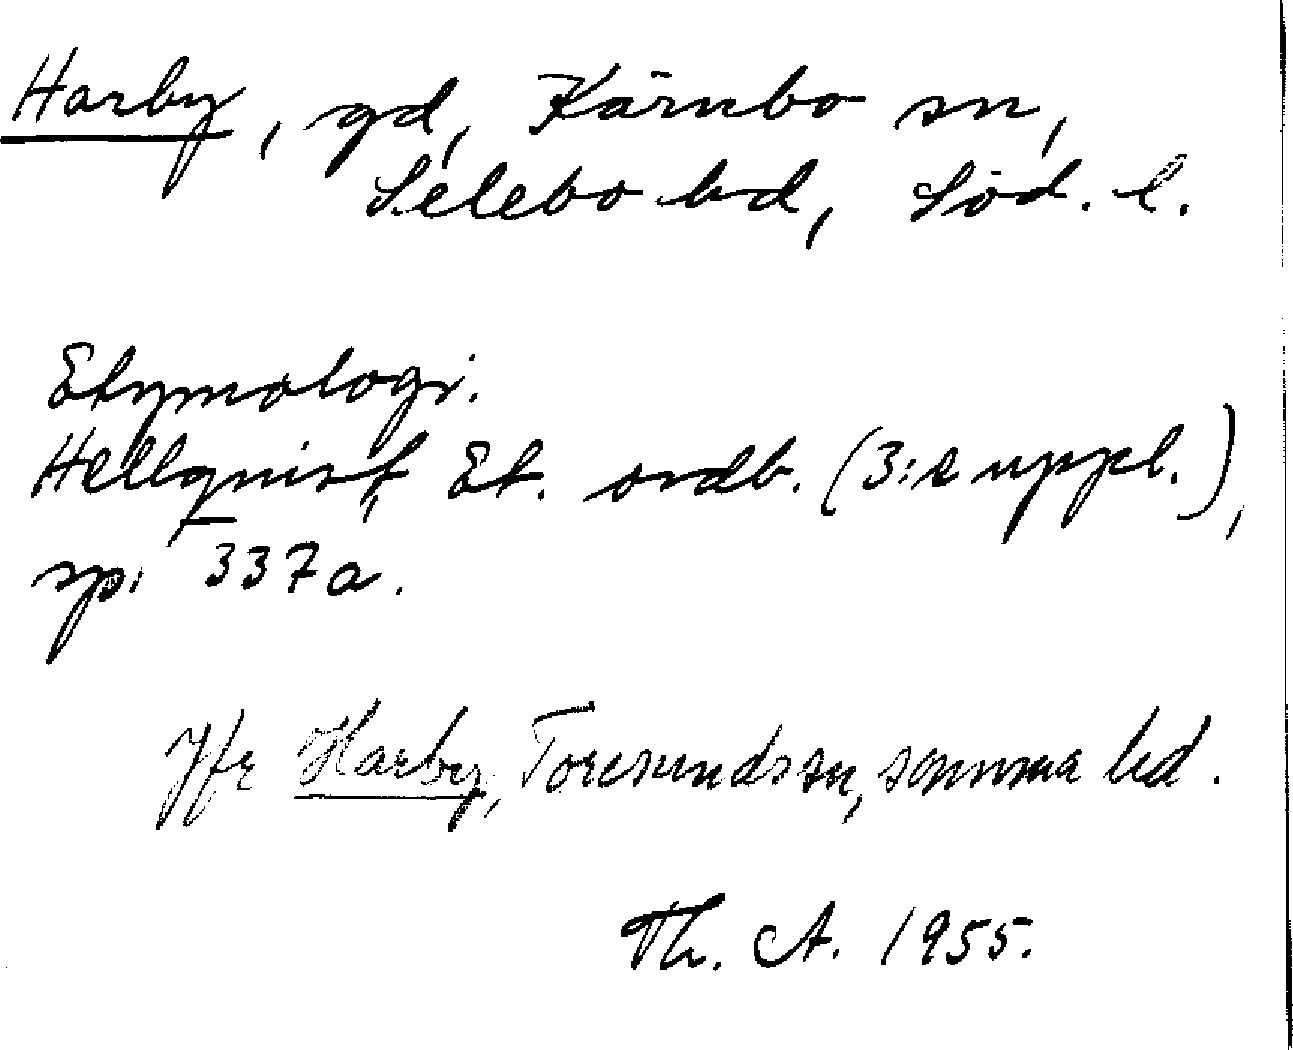 Harby, gd, Kärnbo sn,
Selebo hd, Söd. l.
Etymologi.
Hellquist, Et. ordb. (3:e uppl.),
sp. 337a.
Jfr Harby, Toresunds sn, samma hd.
Th. A. 1955.